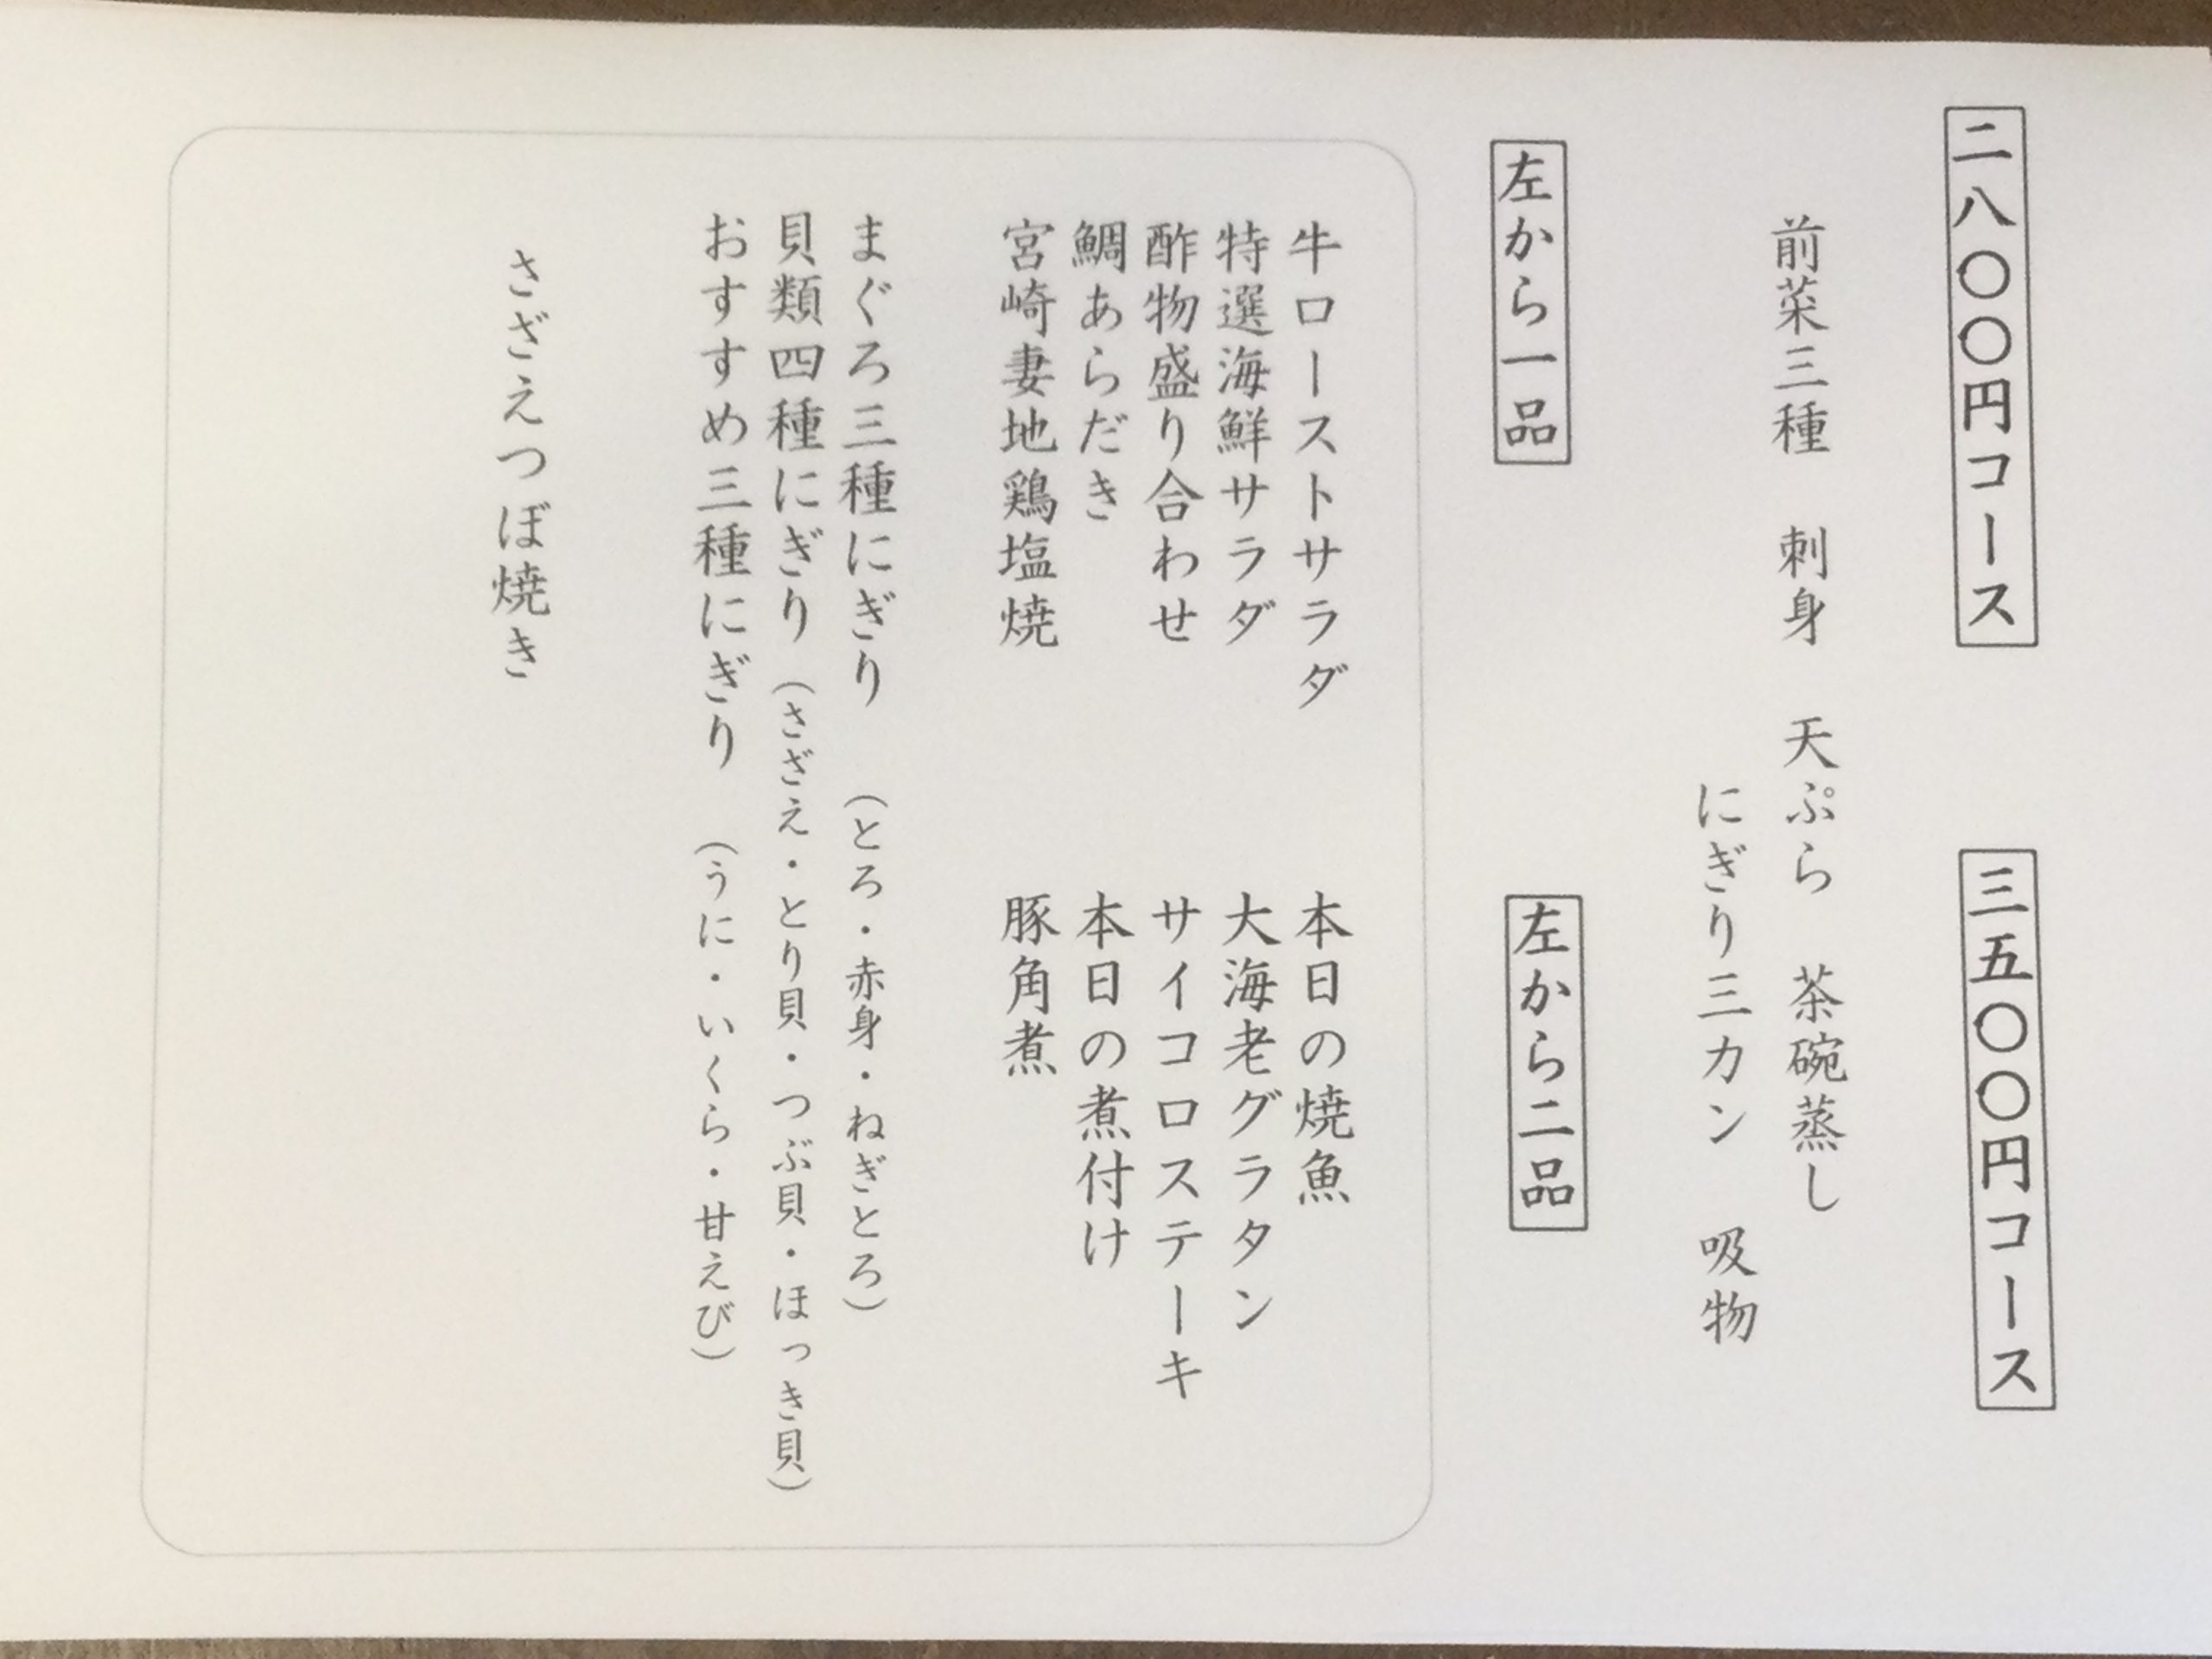 二八〇〇円コース
三五〇〇円コース
前菜三種　刺身　天ぷら　茶碗蒸し
にぎり三カン　吸物
左から一品
左から二品
牛ローストサラダ
特選海鮮サラダ
酢物盛り合わせ
鯛あらだき
宮崎妻地鶏塩焼
本日の焼魚
大海老グラタン
サイコロステーキ
本日の煮付け
豚角煮
まぐろ三種にぎり　（とろ・赤身・ねぎとろ）
貝類四種にぎり（さざえ・とり貝・つぶ貝・ほっき貝）
おすすめ三種にぎり　（うに・いくら・甘えび）
さざえつぼ焼き